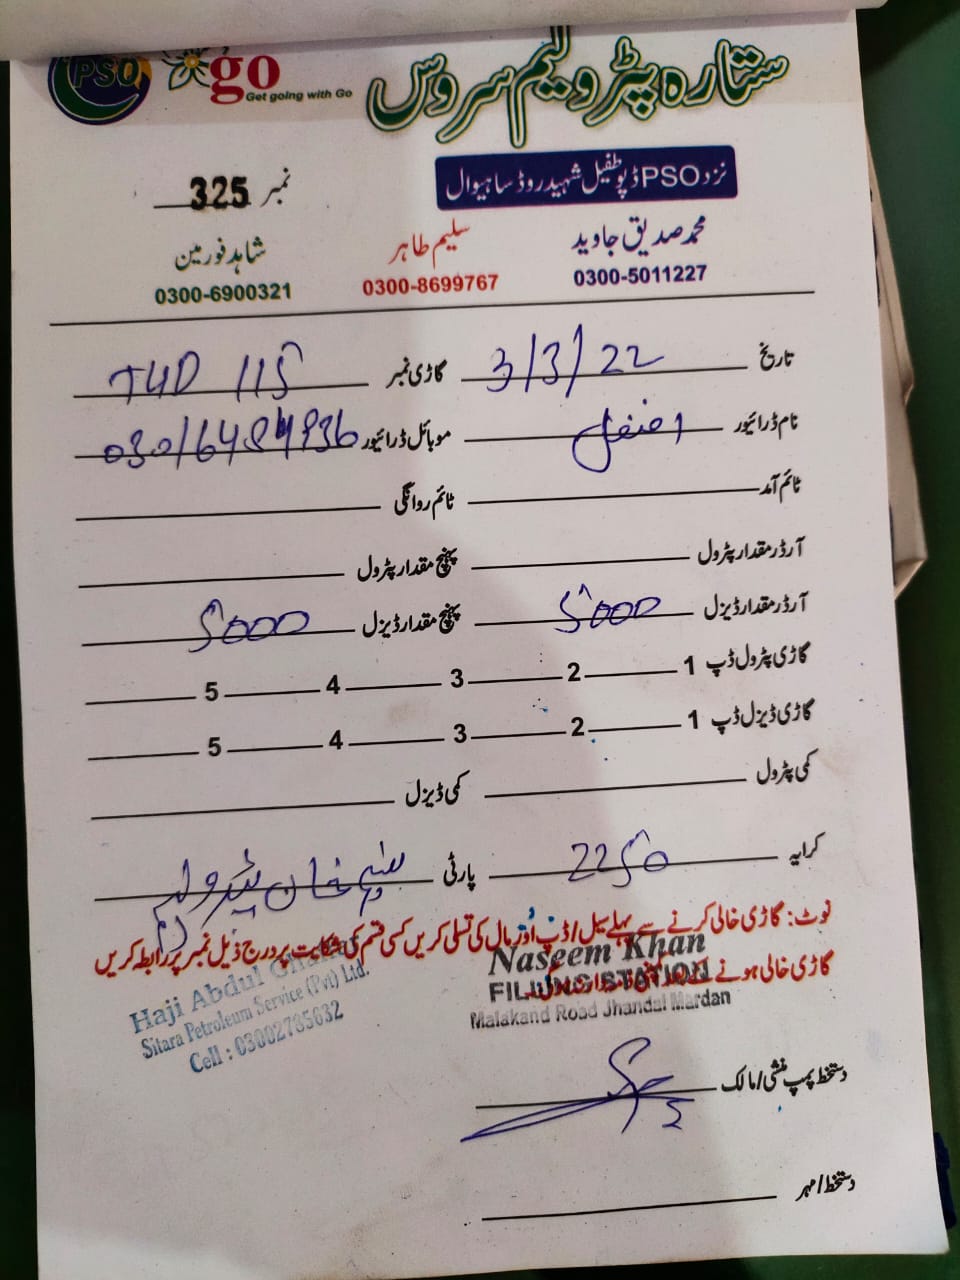 PSO go ستارہ پٹرولیم سروس
Get going with Go
نزد PSO ڈپو طفیل شہید روڈ ساہیوال
نمبر 325
محمد صدیق جاوید سلیم طاہر شاہد فورمین
0300-5011227 0300-8699767 0300-6900321
تاریخ 3/3/22 گاڑی نمبر TUD 115
نام ڈرائیور موبائل ڈرائیور
ٹائم آمد ٹائم روانگی
آرڈر مقدار پٹرول پہنچ مقدار پٹرول
آرڈر مقدار ڈیزل 5000 پہنچ مقدار ڈیزل 5000
گاڑی پٹرول ڈپ 1 2 3 4 5
گاڑی ڈیزل ڈپ 1 2 3 4 5
کمی پٹرول کمی ڈیزل
کرایہ 2250 پارٹی نسیم خان پیٹرولیم
نوٹ: گاڑی خالی کرنے سے پہلے سیل / ڈپ اور مال کی تسلی کریں کسی قسم کی شکایت پر درج ذیل نمبر پر رابطہ کریں
گاڑی خالی ہونے کے بعد
Naseem Khan
FILLING STATION
Malakand Road Jhandai Mardan
Haji Abdul
Sitara Petroleum Service (Pvt) Ltd.
Cell : 03002785632
دستخط پمپ منشی / مالک
دستخط / مہر